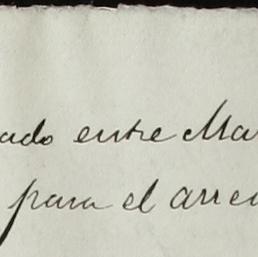 ado entre Ma
para el arre